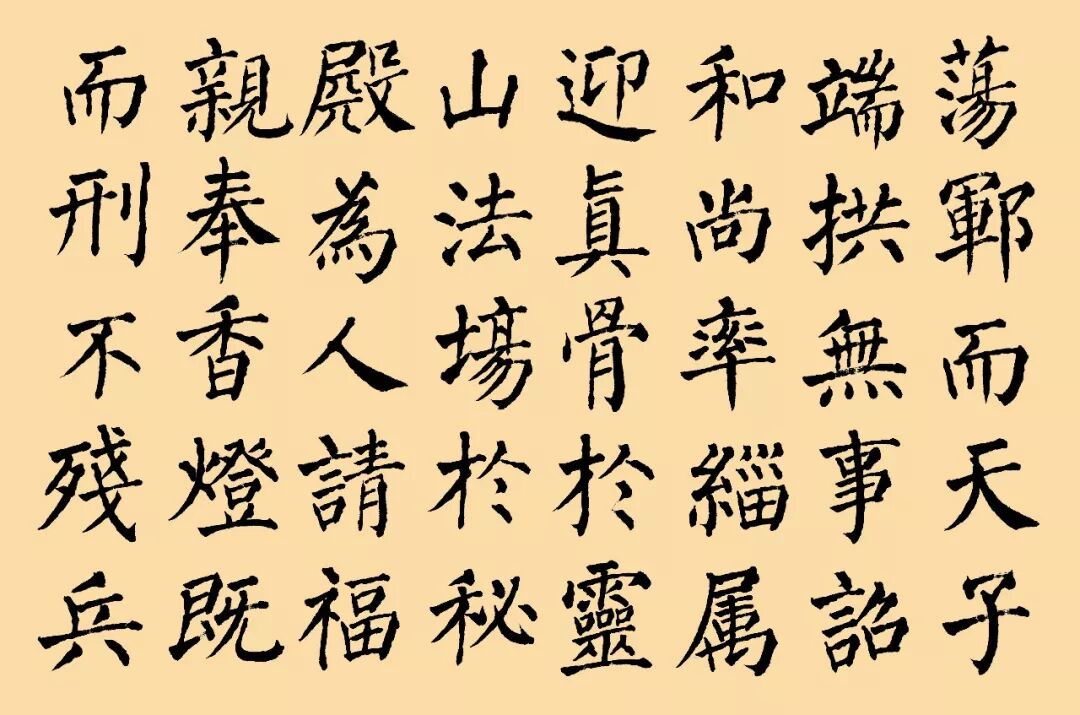 蕩鄆而天子
端拱無事詔
和尚率緇属
迎眞骨於靈
山法塲於秘
殿為人請福
親奉香燈既
而刑不殘兵